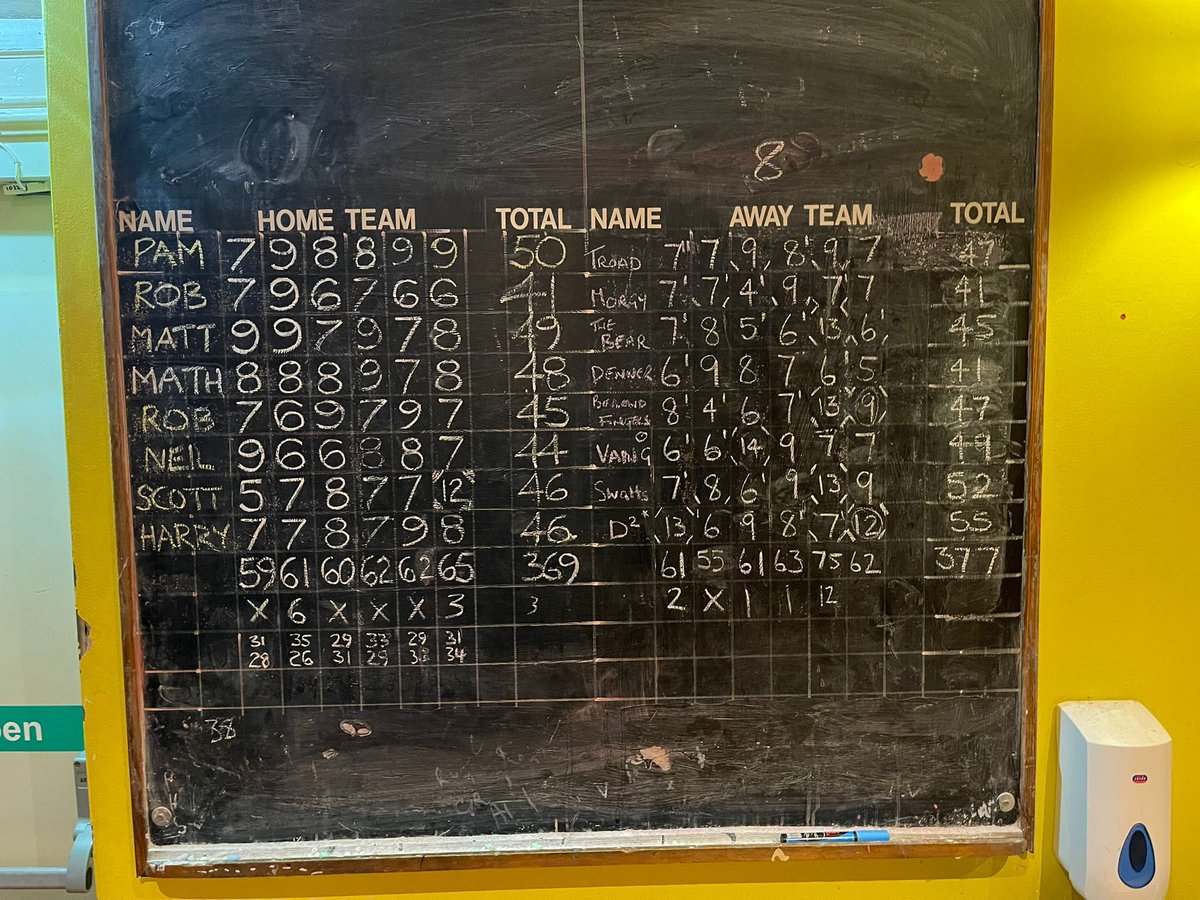 8
NAME HOME TEAM TOTAL NAME AWAY TEAM TOTAL
PAM 7 9 8 8 9 9 50 TROAD 7' 7 9 8' 9 7 47
ROB 7 9 6 7 6 6 41 MORGY 7' 7 4' 9 7 7 41
MATT 9 9 7 9 7 8 49 THE BEAR 7' 8 5' 6' 13 6' 45
MATH 8 8 8 9 7 8 48 DENNER 6' 9 8 7 6' 5 41
ROB 7 6 9 7 9 7 45 FINGERS 8' 4' 6 7' 13 9 47
NEIL 9 6 6 8 8 7 44 6' 6' 14 9 7 7 49
SCOTT 5 7 8 7 7 12 46 Swatts 7' 8 6' 9 13 9 52
HARRY 7 7 8 7 9 8 46 D² 13 6 9 8' 7 12 55
59 61 60 62 62 65 369 61 55 61 63 75 62 377
X 6 X X X 3 3 2 X 1 1 12
31 35 29 33 29 31
28 26 31 29 33 34
38
en